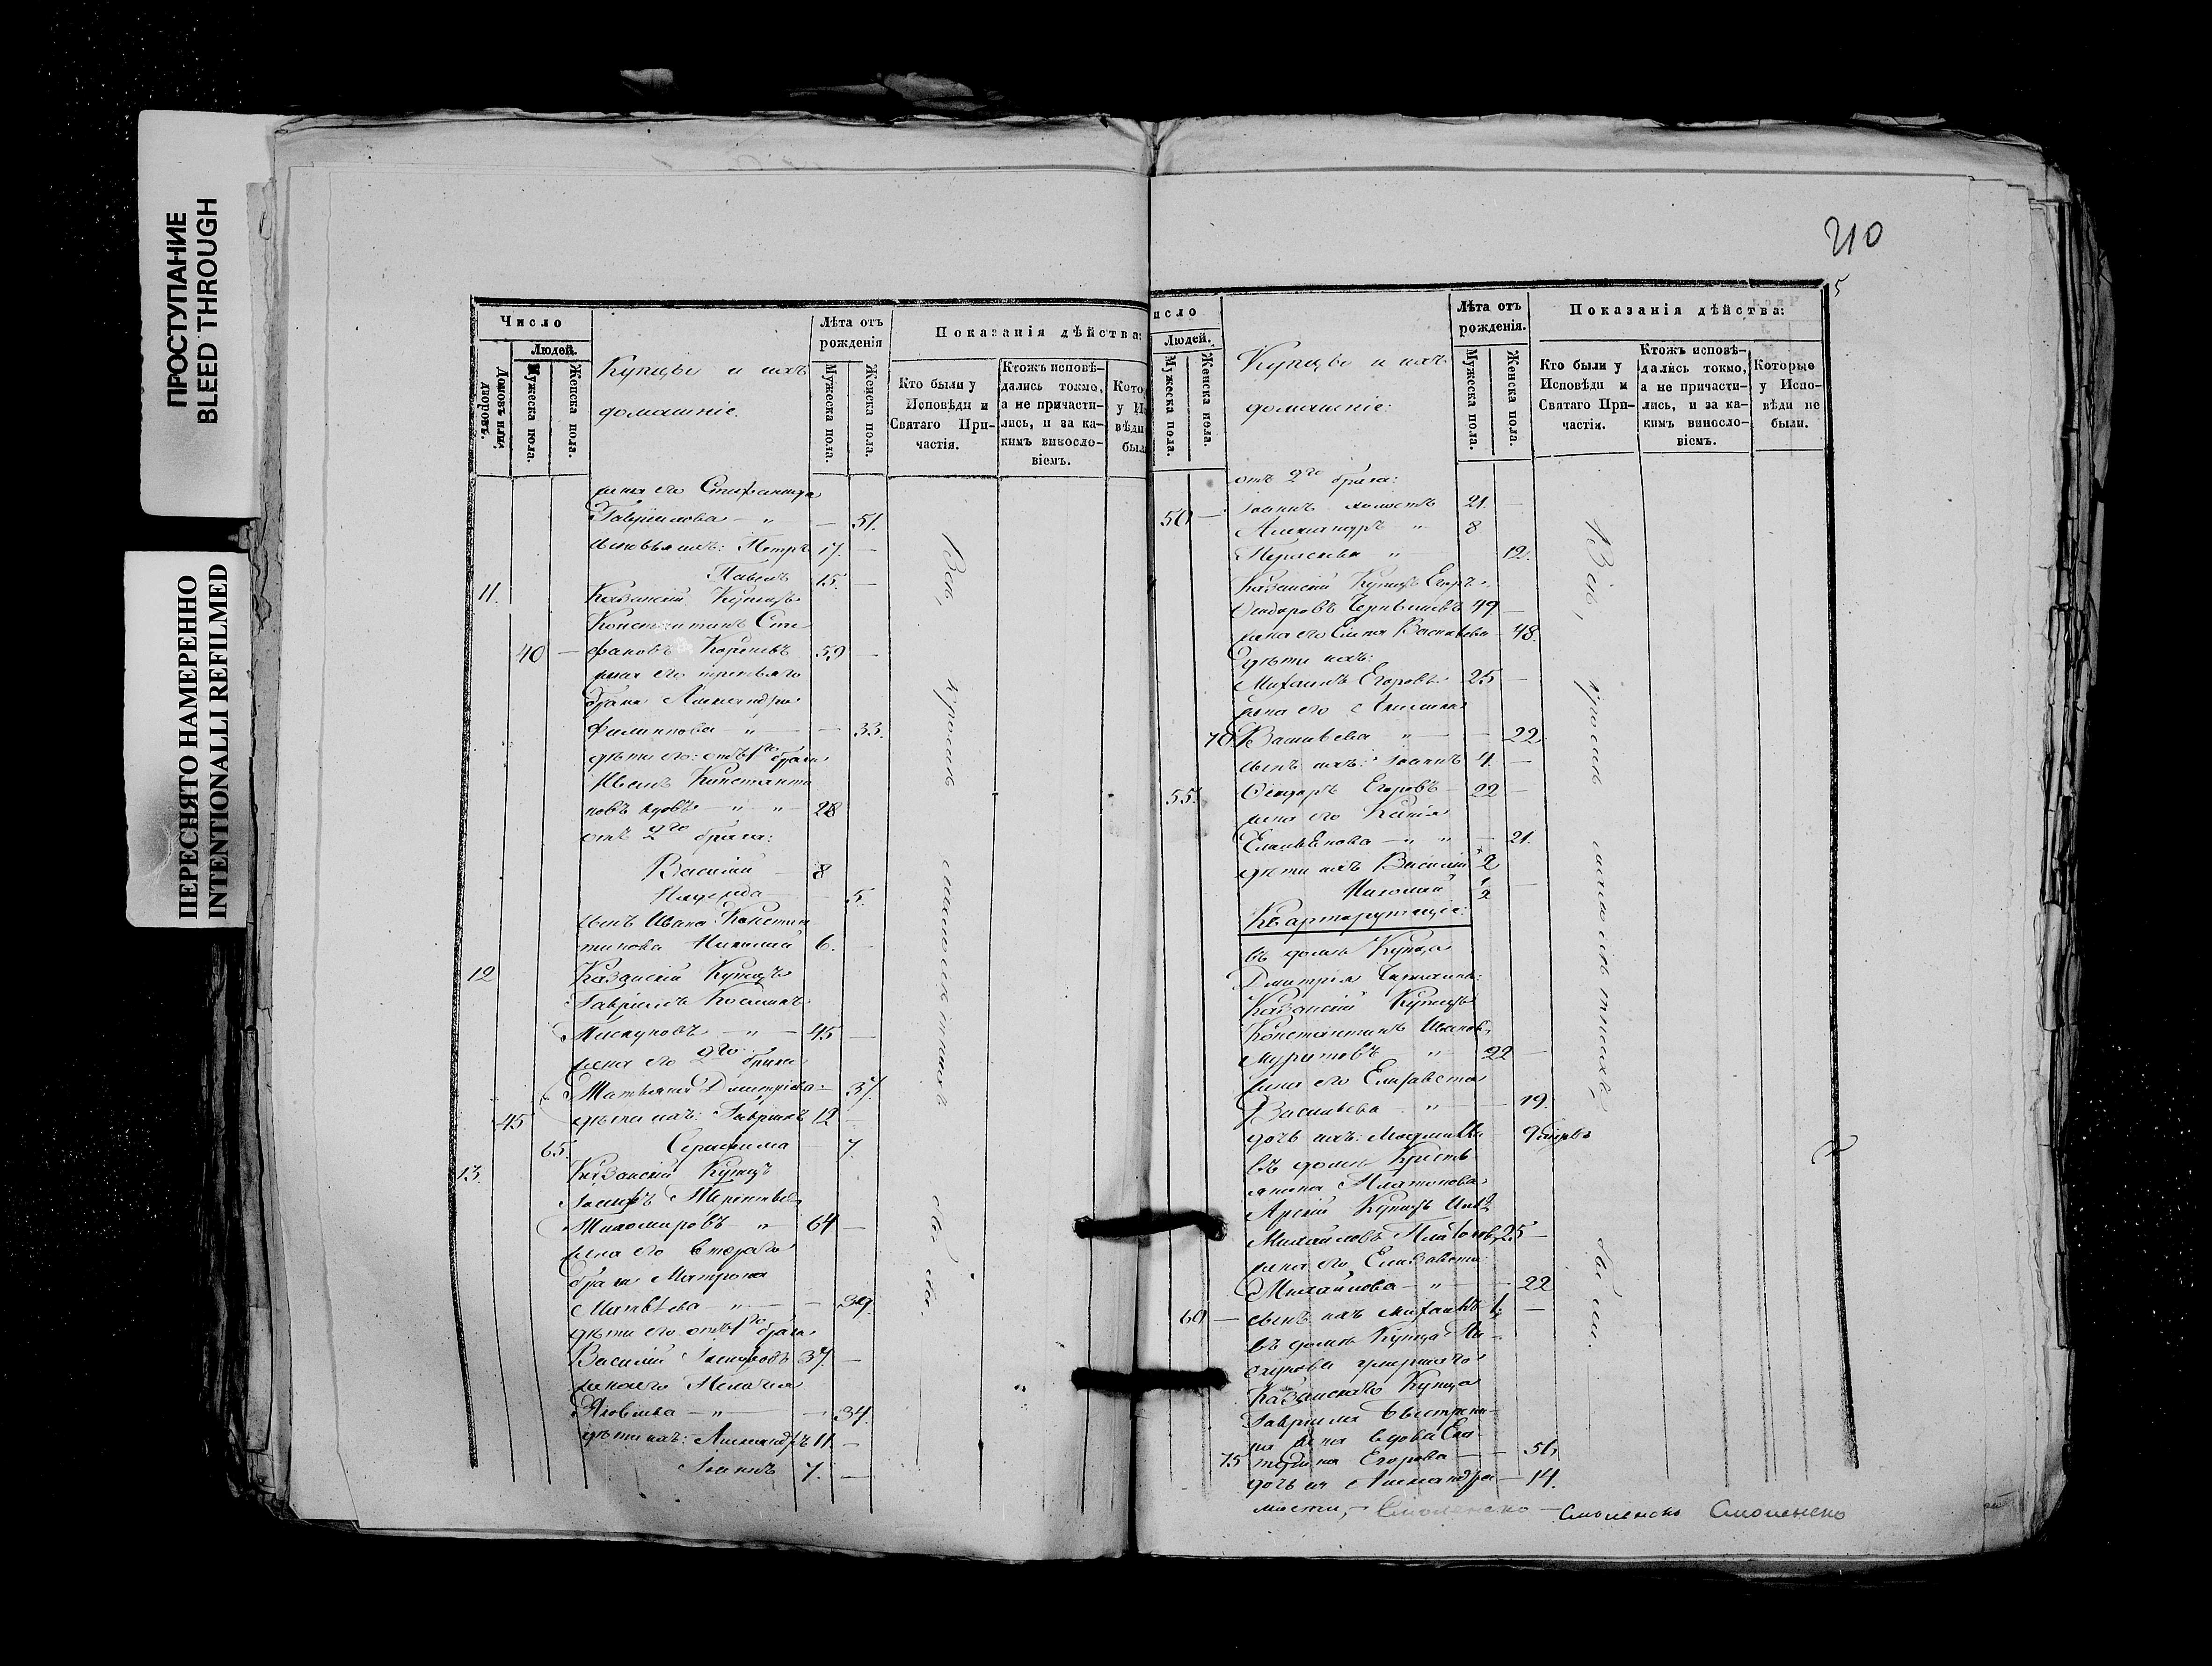 ПРОСТУПАНИЕ
BLEED THROUGH
ПЕРЕСНЯТО НАМЕРЕННО
INTENTIONALLI REFILMED
Число
Людей.
Домовъ или дворовъ.
Мужеска пола.
Женска пола.
Купцы и ихъ
домашніе.
Лѣта отъ
рожденія
Мужеска пола.
Женска пола.
Показанія дѣйства:
Кто были у
Исповѣди и
Святаго При-
частія.
Ктожъ исповѣ-
дались токмо,
а не причасти-
лись, и за ка-
кимъ виносло-
віемъ.
жена его
Гавриилова — " — — 51.
сыновья ихъ: Петръ 17. —
Павелъ 15. —
11. Казанскій Купецъ
Константинъ Сте
40 — фановъ 59 —
жена его третьяго
брака Александра
Филиппова — " — — 33.
дѣти его: отъ 1го брака
Иванъ Константи
новъ вдовъ — " — " — 28
отъ 2го брака:
Василій — 8
Надежда — 5.
сынъ Ивана Констан
тинова Николай 6. —
12 Казанскій Купецъ
Гавріилъ Косминъ
Пискуновъ — " — 45 —
жена его 2го брака
Татьяна Дмитріева — 37.
45 дѣти ихъ: Гавріилъ 12 —
65. Серафима — 7.
13. Казанскій Купецъ
Іосифъ
Тихомировъ — " 64 —
жена его втораго
брака Матрона
Матвѣева — " — — 39.
дѣти его отъ 1го брака
Василій Іосифовъ 37. —
жена его Пелагія
Яковлева — " — — 34.
дѣти ихъ: Александръ 11. —
Іоаннъ 7. —
Всѣ, кромѣ малолѣтнихъ были.
210
5
Людей.
Мужеска пола.
Женска пола.
Купцы и ихъ
домашніе:
Лѣта отъ
рожденія.
Мужеска пола.
Женска пола.
Показанія дѣйства:
Кто были у
Исповѣди и
Святаго При-
частія.
Ктожъ исповѣ-
дались токмо,
а не причасти-
лись, и за ка-
кимъ виносло-
віемъ.
Которые
у Испо-
вѣди не
были.
отъ 2го брака:
50 — Іоаннъ холостъ 21. —
Александръ " 8
Параскева " 12.
Казанскій Купецъ Егоръ
Ѳеодоровъ 49 —
жена его Васильева — 48.
дѣти ихъ:
Михаилъ Егоровъ 25 —
жена его
70. Васильева " — — 22.
сынъ ихъ: Іоаннъ 4. —
55. Ѳеодоръ Егоровъ — 22 —
жена его
— " " — 21.
дѣти ихъ Василій 2
Николай 1/2 —
Квартирующіе:
въ домѣ Купца
Дмитрія
Казанскій Купецъ
Константинъ Иванов
Муратовъ " 22 —
жена его Елизавета
Васильева — " — — 19.
дочь ихъ:
въ домѣ Кресть
янина Платонова
Арскій Купецъ
Михайловъ Платоновъ 25 —
жена его Елизавета
Михайлова — " — — 22
60 — сынъ ихъ Михаилъ 1. —
въ домѣ Купца Пи
скунова умершаго
Казанскаго Купца
Гавріила
жена вдова Ека
75 терина Егорова — — 51.
дочь ея Александра — 14.
Всѣ, кромѣ малолѣтнихъ, были.
Смоленско — Смоленско Смоленско